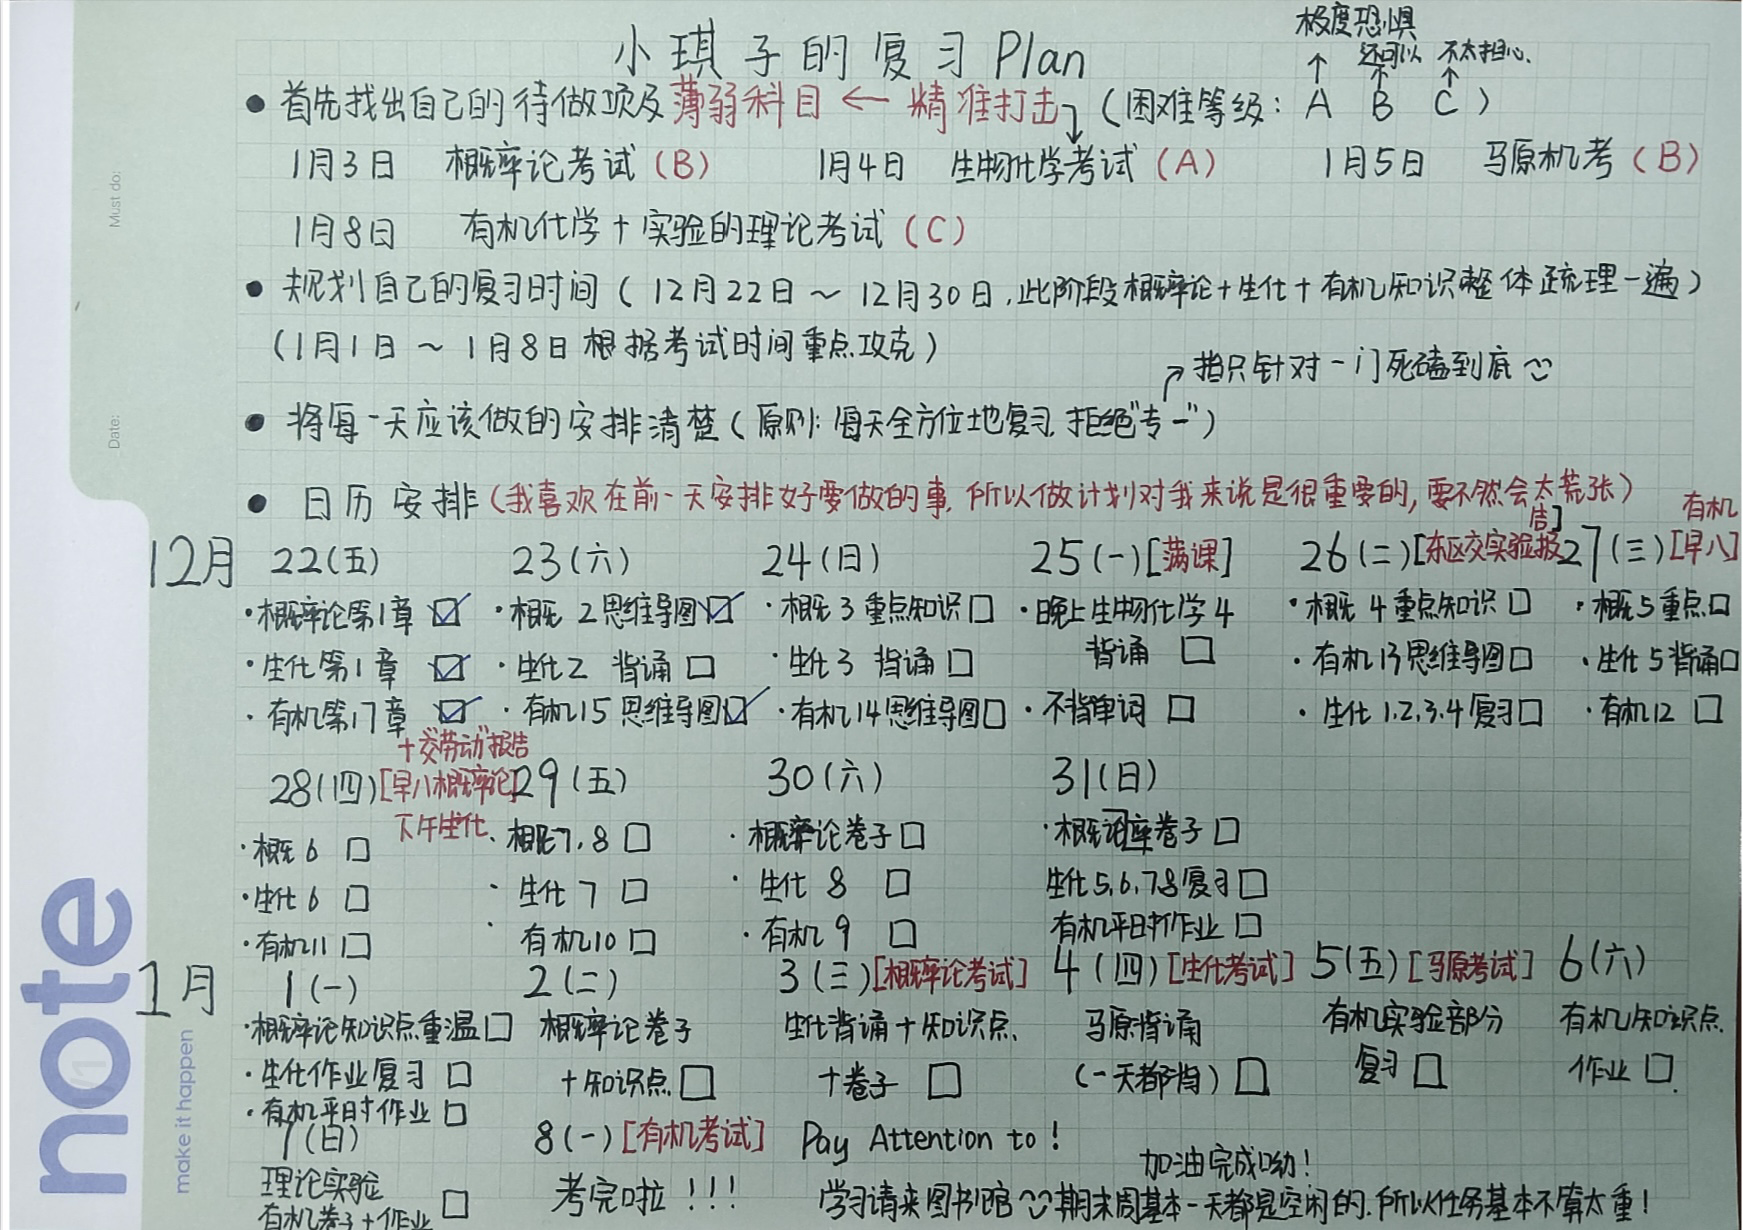 极度恐惧
还可以 不太担心
小琪子的复习Plan
● 首先找出自己的待做项及薄弱科目 ← 精准打击 (困难等级: A B C )
1月3日 概率论考试(B) 1月4日 生物化学考试(A) 1月5日 马原机考(B)
1月8日 有机化学+实验的理论考试(C)
● 规划自己的复习时间(12月22日~12月30日,此阶段概率论+生化+有机知识整体疏理一遍)
(1月1日~1月8日根据考试时间重点攻克)
指只针对一门死磕到底
● 将每一天应该做的安排清楚(原则:每天全方位地复习,拒绝"专一")
● 日历安排(我喜欢在前一天安排好要做的事,所以做计划对我来说是很重要的,要不然会太慌张)
12月 22(五) 23(六) 24(日) 25(一)[满课] 26(二)[东区交实验报告] 27(三)[有机早八]
·概率论第1章 ☑ ·概统2思维导图☑ ·概统3重点知识□ ·晚上生物化学4 ·概统4重点知识□ ·概统5重点□
·生化第1章 ☑ ·生化2 背诵□ ·生化3 背诵□ 背诵□ ·有机13思维导图□ ·生化5背诵□
·有机第17章 ☑ ·有机15思维导图☑ ·有机14思维导图□ ·不背单词□ ·生化1.2.3.4复习□ ·有机12□
+交"劳动"报告
28(四)[早八概率论] 29(五) 30(六) 31(日)
下午生化
·概统6□ 概统7,8□ ·概率论卷子□ ·概论率卷子□
·生化6□ ·生化7□ ·生化8□ 生化5,6,7,8复习□
·有机11□ ·有机10□ ·有机9□ 有机平时作业□
1月 1(一) 2(二) 3(三)[概率论考试] 4(四)[生化考试] 5(五)[马原考试] 6(六)
·概率论知识点重温□ 概率论卷子 生化背诵+知识点 马原背诵 有机实验部分 有机知识点
·生化作业复习□ +知识点□ +卷子□ (一天都背)□ 复习□ 作业□
·有机平时作业□
7(日) 8(一)[有机考试] Pay Attention to!
理论实验 考完啦!!! 加油完成呦!
有机卷子+作业□ 学习请来图书馆 期末周基本一天都是空闲的,所以任务基本不算太重!
note
make it happen
Must do:
Date: